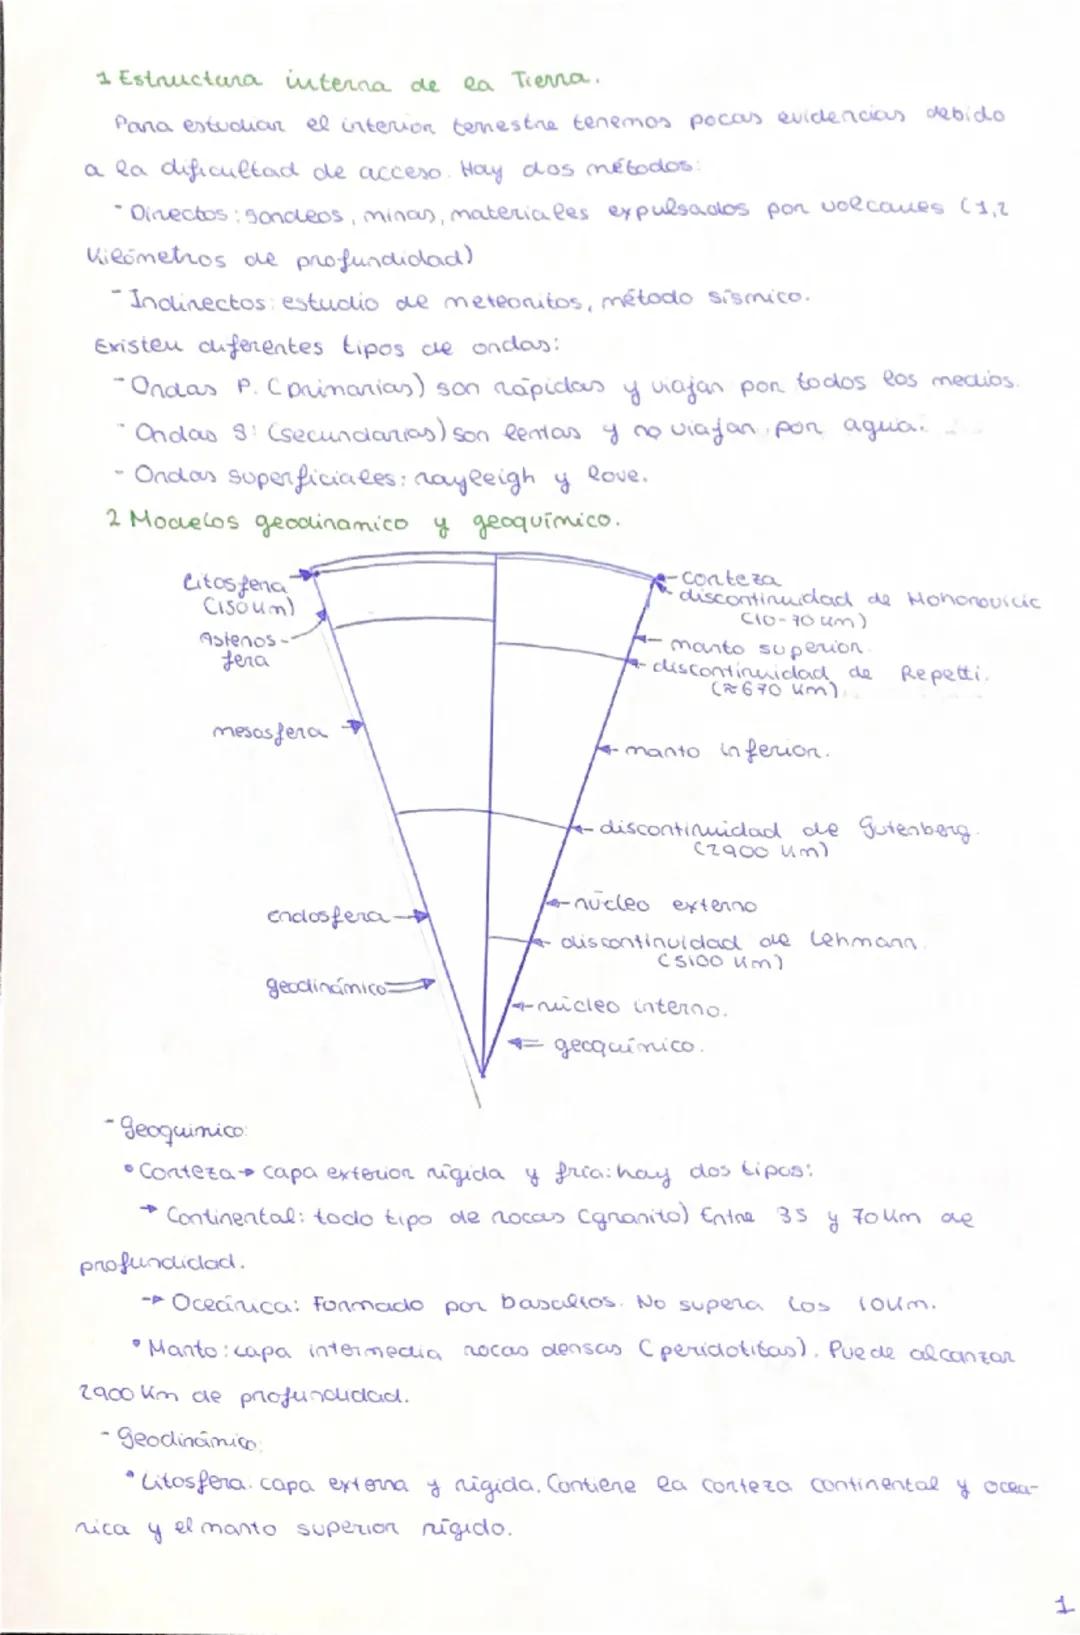 1 Estructura interna de la Tierra.
Para estudiar el interior terrestre tenemos pocas evidencias debido
a la dificultad de acceso. Hay dos métodos:
- Directos: sondeos, minas, materiales expulsados por volcanes (1,2
kilómetros de profundidad)
- Indirectos: estudio de meteoritos, método sísmico.
Existen diferentes tipos de ondas:
- Ondas P. (primarias) son rápidas y viajan por todos los medios.
- Ondas S: (secundarias) son lentas y no viajan por agua.
- Ondas superficiales: rayleigh y love.
2 Modelos geodinamico y geoquímico.
Litosfera
(150 km)
Astenos-
fera
mesosfera
endosfera
geodinámico
corteza
discontinuidad de Mohorovicic
(10-70 km)
manto superior
discontinuidad de Repetti.
(≈670 km)
manto inferior.
discontinuidad de Gutenberg.
(2900 km)
núcleo externo
discontinuidad de Lehmann.
(5100 km)
núcleo interno.
geoquímico.
- Geoquimico:
• Corteza → capa exterior rígida y fría: hay dos tipos:
→ Continental: todo tipo de rocas (granito) Entre 35 y 70 km de
profundidad.
→ Oceánica: Formado por basaltos. No supera los 10 km.
• Manto: capa intermedia rocas densas (peridotitas). Puede alcanzar
2900 km de profundidad.
- Geodinámico:
• Litosfera. capa externa y rígida. Contiene la corteza continental y oceá-
nica y el manto superior rígido.
1